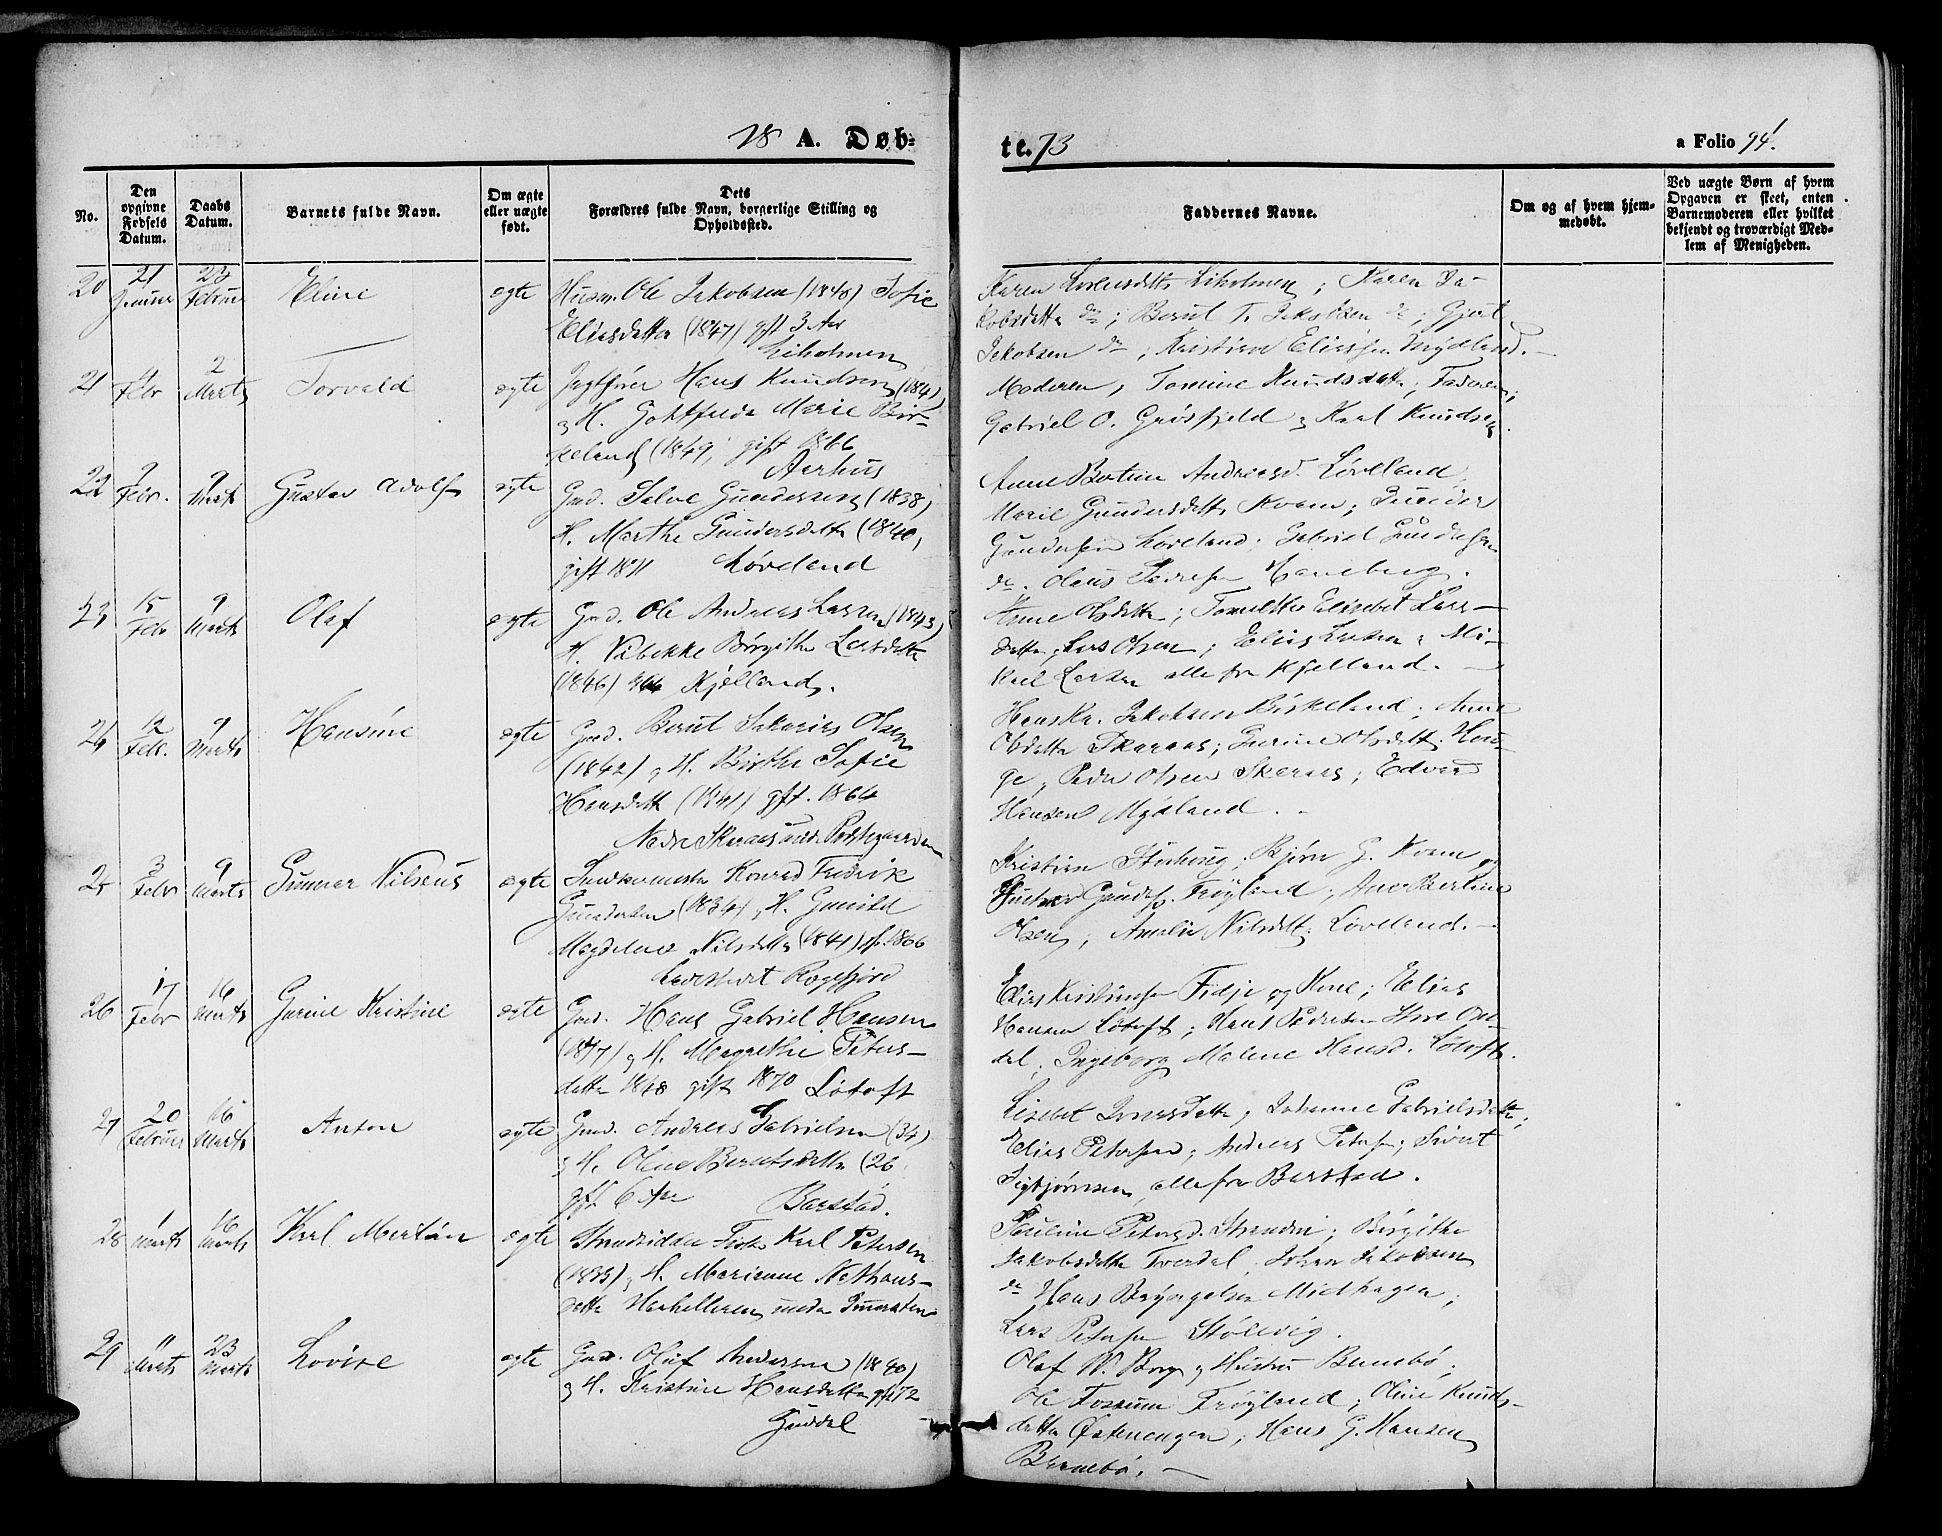 18 A. Døb=
te. 73
a Folio 94.
No.
Den opgivne Fødsels Datum.
Daabs Datum.
Barnets fulde Navn.
Om ægte eller uægte født.
Dets Forældres fulde Navn, borgerlige Stilling og Opholdssted.
Faddernes Navne.
Om og af hvem hjem-
medøbt.
Ved uægte Børn af hvem
Opgaven er skeet, enten
Barnemoderen eller hvilket
bekjendt og troværdigt Med-
lem af Menigheden.
20 21 Januar 23 Februar Eline ægte Husm. Ole Jakobsen (1848) Sofie
Eliesdatter (1847) gft 3 Aar
Liholmen
Karen Liholmen; Karen Ja-
kobsdatter do; Berut T. Jakobsen do; Gjert
Jakobsen do; Kristien Eliesen Mydland.
21 Febr 2 Marts Torvald ægte Jagtfører Hans Knudsen (1841)
og H. Marie Bir-
keland (1849, gift 1866
Aarhus
Moderen, Tomine Knudsdatter, Faderen;
Gabriel O. Grøsfjeld og Karl Knudsen.
22 9 Febr. 9 Marts Gustav Adolf ægte Grd. Salve Gundersen (1838)
H. Marthe Gundersdatter (1840,
gift 1871 Løvland
Anne Bertine Andreasd. Løvland,
Marie Gundersdatter Kvam; Gunder
Gundersen Løvland; Gabriel Gundersen
do. Olaus Pedersen Haneberg.
23 15 Febr 9 Marts Olaf ægte Grd. Ole Andreas Larsen (1843)
H. Vibekke Børgithe Larsdatter
(1846) Kjelland.
Anne Olsdatter; Elisebet Lars-
datter; Lars Olsen; Elias Larsen; Mi-
kal Larsen alle fra Kjelland.
24 12 Febr. 9 Marts Hansine ægte Grd. Berut Sakarias Olsen
(1842) og H. Birthe Sofie
Hansdatter (1841) gft. 1864
Nedre Skaraas under Præstegaarden
Hans Kr. Jakobsen Birkeland; Anne
Olsdatter Skaraas; Gurine Olsdatter Hau-
ge, Peder Olsen Skaraas; Edvard
Hansen Mydland.
25 3 Febr 9 Marts Gunner Nilseus ægte Konrad Fredrik
Gundersen (1834), H. Gunild
Magdalene Nilsdatter (1841) gf. 1866
Rægefjord
Kristien; Bjørn G. Kvam og
Hustru Frøyland; Ane Bertine
Olsen; Amalie Nilsdatter Løvland.
26 17 Febr 16 Marts Gurine Kristine ægte Grd. Hans Gabriel Hansen
(1847) og H. Magrethe Peters-
datter 1848 gift 1870 Løtoft
Elias Kristiansen Fidje og Kone; Elias
Hansen Løtoft; Hans Pedersen
dal; Ingeborg Malene Hansd. Løtoft.
27 20 Februar 16 Marts Anton ægte Grd. Andreas Gabrielsen (34)
og H. Olene Berntsdatter (26
gft 6 Aar Barstad.
Lisebet; Johanne Gabrielsdatter;
Elias Petersen; Andreas Petersen; Sivert
Sigbjørnsen, alle fra Barstad.
28 1 Marts 16 Marts Karl Martin ægte Strandsidder Fisker Karl Petersen
(1835), H. Marianne Nathans-
datter under
Pauline Petersd. Stranden; Børgithe
Jakobsdatter Tverdal, Johan Jakobsen
do Hans Midhagen;
Lars Petersen Stølevig.
29 11 Marts 23 Marts Lovise ægte Grd. Oluf Andersen (1840)
og H. Kristine Hansdatter gft 72
Guddal
Olaf W. Borg og Hustru Barnebø;
Ole Tossum Frøyland; Oline Knuds-
datter Østenengen; Hans G. Hansen
Barnebø.